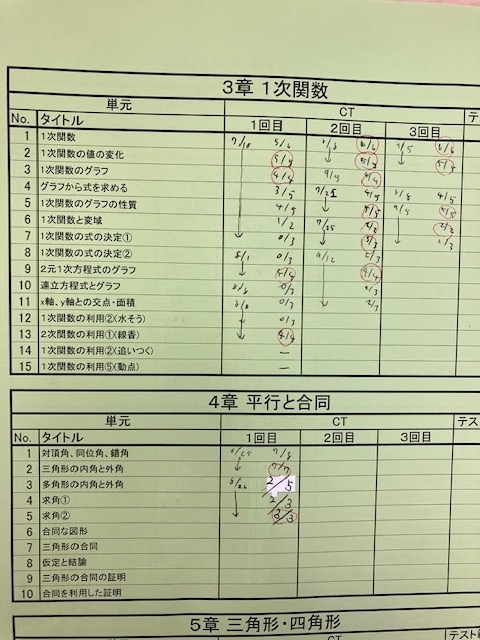 3章 1次関数
単元 CT テ
No. タイトル 1回目 2回目 3回目
1 1次関数 7/18 5/6 6/6
2 1次関数の値の変化 5/5
3 1次関数のグラフ 4/4 9/9 4/4
4 グラフから式を求める 3/5 4/5 4/5
5 1次関数のグラフの性質 4/5 5/5 9/5 5/5
6 1次関数と変域 1/2 7/25 2/2
7 1次関数の式の決定① 0/3 3/3 2/3
8 1次関数の式の決定② 8/1 0/3 9/12
9 2元1次方程式のグラフ 4/4
10 連立方程式とグラフ 8/8 0/3 2/3
11 x軸、y軸との交点・面積 8/8 0/3 2/3
12 1次関数の利用②(水そう) 0/3
13 2次関数の利用①(線香) 4/4
14 1次関数の利用②(追いつく) ー
15 1次関数の利用⑤(動点) ー
4章 平行と合同
単元 CT テスト
No. タイトル 1回目 2回目 3回目
1 対頂角、同位角、錯角 7/8
2 三角形の内角と外角 7/7
3 多角形の内角と外角 8/26 2/5
4 求角① 2/3
5 求角② 3/3
6 合同な図形
7 三角形の合同
8 仮定と結論
9 三角形の合同の証明
10 合同を利用した証明
5章 三角形・四角形
単元 CT